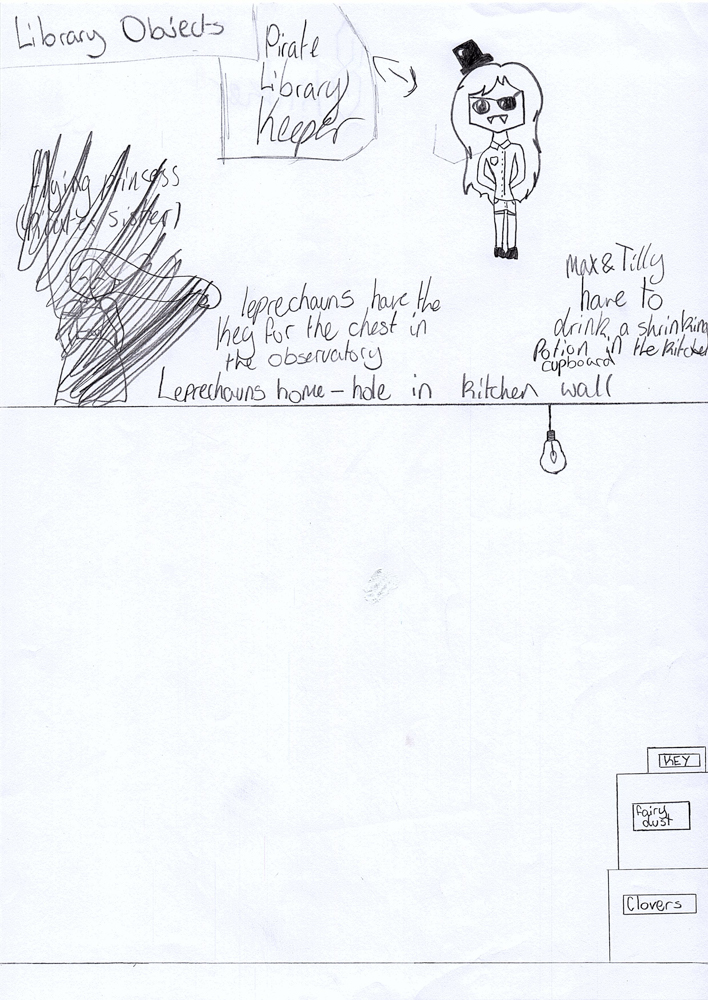 Library Objects
Pirate
Library
Keeper
flying princess
(pirates sister)
leprechauns have the
key for the chest in
the observatory
Max & Tilly
have to
drink a shrinking
Potion in the kitchen
cupboard
Leprechauns home - hole in kitchen wall
KEY
fairy
dust
Clovers